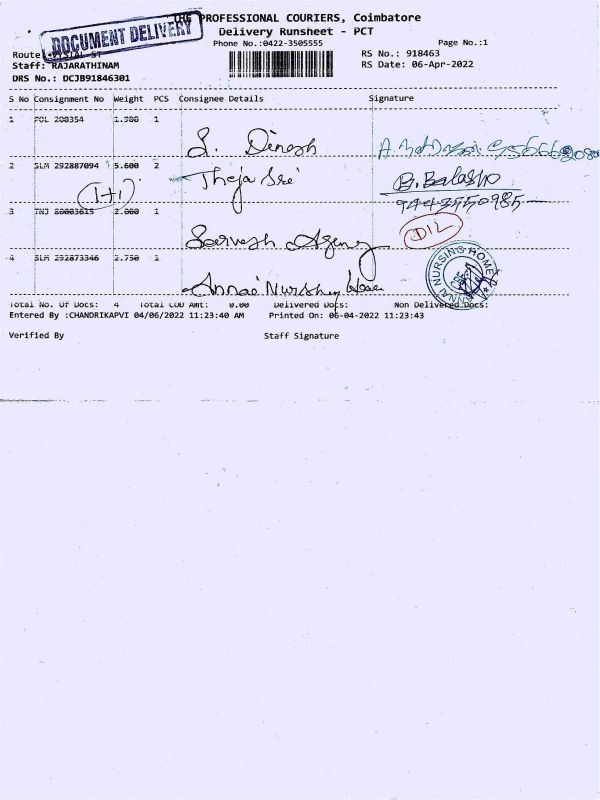 THE PROFESSIONAL COURIERS, Coimbatore
DOCUMENT DELIVERY
Delivery Runsheet - PCT
Phone No.:0422-3505555 Page No.:1
Route RS No.: 918463
Staff: RAJARATHINAM RS Date: 06-Apr-2022
DRS No.: DCJB91846301
S No Consignment No Weight PCS Consignee Details Signature
1 POL 200354 1.980 1
S. Dinesh
2 SLM 292887094 5.600 2
Theja Sri
1+1
9443550985
3 TNJ 80003615 2.000 1
Sarvesh Agency
DIL
4 SLM 292873346 2.750 1
Annai Nursing Home
NURSING HOME
Total No. Of Docs: 4 Total COD Amt: 0.00 Delivered Docs: Non Delivered Docs:
Entered By :CHANDRIKAPVI 04/06/2022 11:23:40 AM Printed On: 06-04-2022 11:23:43
Verified By Staff Signature